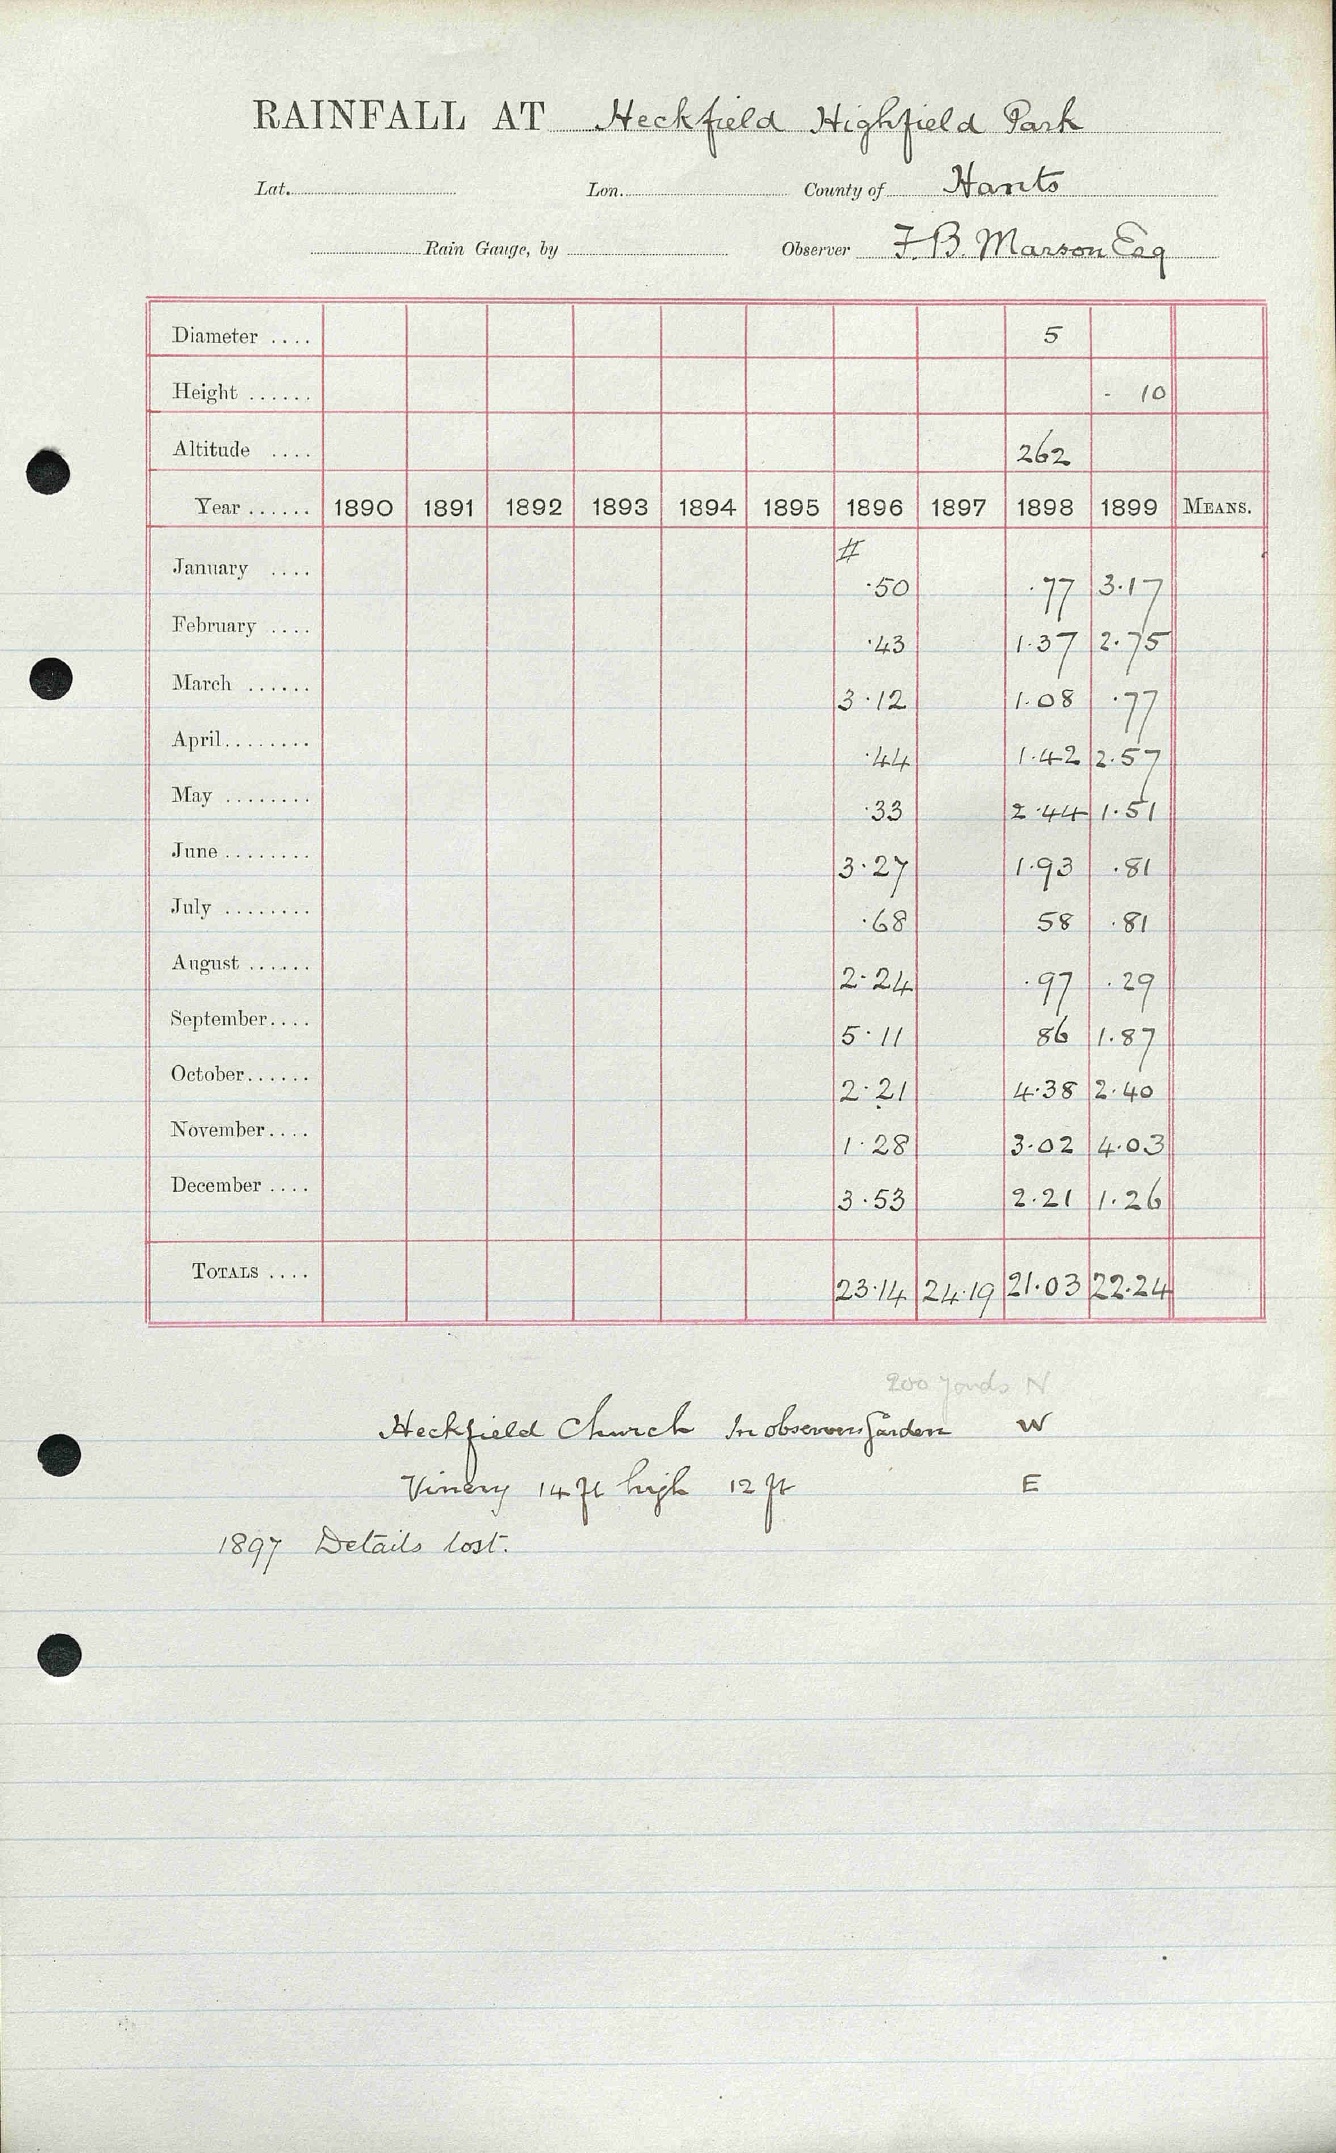 RAINFALL AT Heckfield Highfield Park
Lat. Lon. County of Hants
Rain Gauge, by Observer F. B. Marson Esq
Diameter .... 5
Height ...... - 10
Altitude .... 262
Year ...... 1890 1891 1892 1893 1894 1895 1896 1897 1898 1899 MEANS.
#
January .... ·50 ·77 3·17
February .... ·43 1·37 2·75
March ...... 3·12 1·08 ·77
April........ ·44 1·42 2·57
May ........ ·33 2·44 1·51
June ........ 3·27 1·93 ·81
July ........ ·68 58 ·81
August ...... 2·24 ·97 ·29
September.... 5·11 86 1·87
October...... 2·21 4·38 2·40
November.... 1·28 3·02 4·03
December .... 3·53 2·21 1·26
TOTALS .... 23·14 24·19 21·03 22·24
200 yards N
Heckfield Church In observers garden W
Vinery 14 ft high 12 ft E
1897 Details lost.